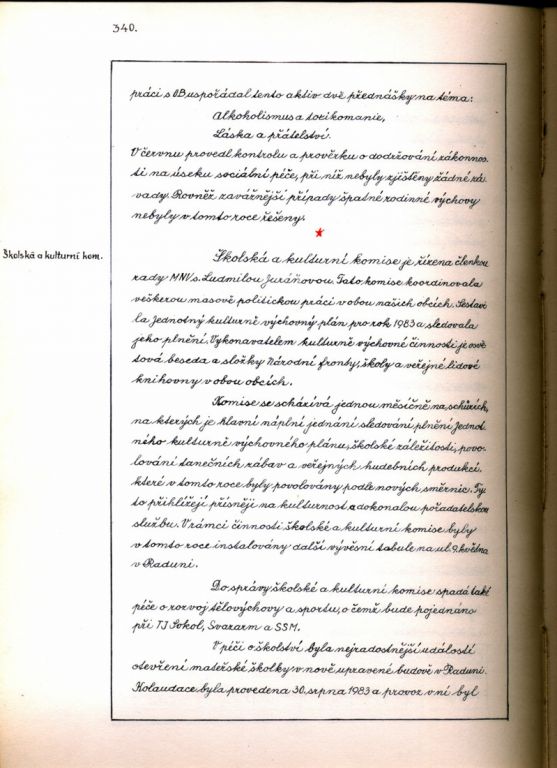 340.
práci s OB uspořádal tento aktiv dvě přednášky na téma:
Alkoholismus a toxikomanie,
Láska a přátelství.
V červnu provedl kontrolu a prověrku o dodržování zákonnos-
ti na úseku sociální péče, při níž nebyly zjištěny žádné zá-
vady. Rovněž závažnější případy špatné rodinné výchovy
nebyly v tomto roce řešeny.
Školská a kulturní kom.
Školská a kulturní komise je řízena členkou
rady MNV s. Ludmilou Juráňovou. Tato komise koordinovala
veškerou masově politickou práci v obou našich obcích. Sestavi-
la Jednotný kulturně výchovný plán pro rok 1983 a sledovala
jeho plnění. Vykonavatelem kulturně výchovné činnosti je osvě-
tová beseda a složky Národní fronty, školy a veřejné lidové
knihovny v obou obcích.
Komise se scházívá jednou měsíčně na schůzích,
na kterých je hlavní náplní jednání sledování plnění Jednot-
ného kulturně výchovného plánu, školské záležitosti, povo-
lování tanečních zábav a veřejných hudebních produkcí,
které v tomto roce byly povolovány podle nových směrnic. Ty-
to přihlížejí přísněji na kulturnost a dokonalou pořadatelskou
službu. V rámci činnosti školské a kulturní komise byly
v tomto roce instalovány další vývěsní tabule na ul. 9. května
v Raduni.
Do správy školské a kulturní komise spadá také
péče o rozvoj tělovýchovy a sportu, o čemž bude pojednáno
při TJ Sokol, Svazarm a SSM.
V péči o školství byla nejradostnější událostí
otevření mateřské školky v nově upravené budově v Raduni.
Kolaudace byla provedena 30. srpna 1983 a provoz v ní byl